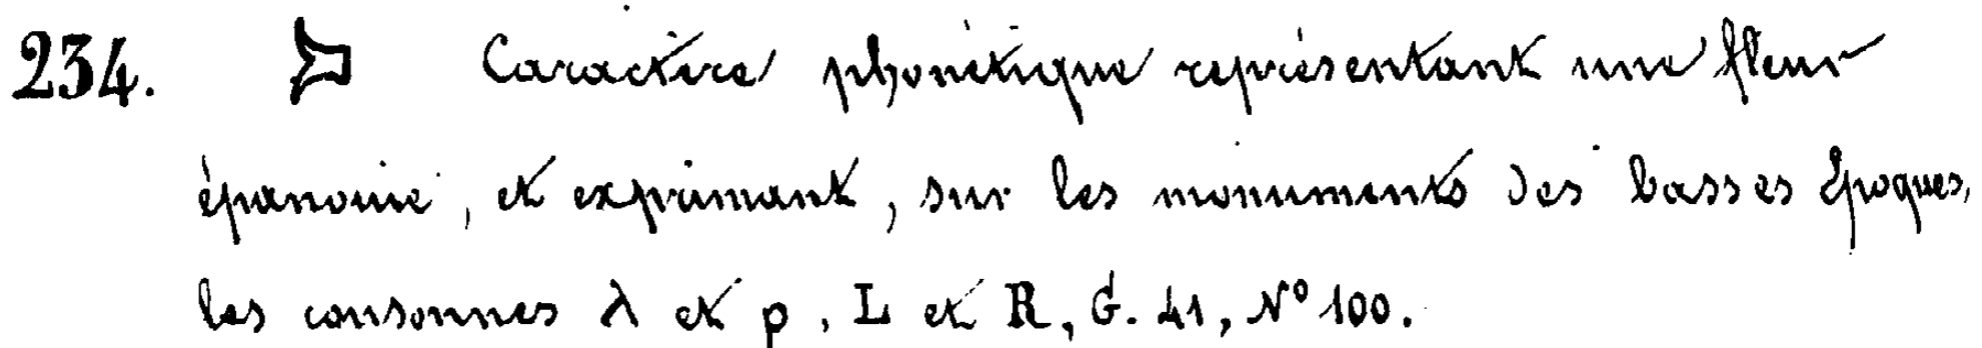 234. Caractère phonétique représentant une fleur
épanouie, et exprimant, sur les monuments des basses époques,
les consonnes λ et ρ, L et R, G. 41, N° 100.